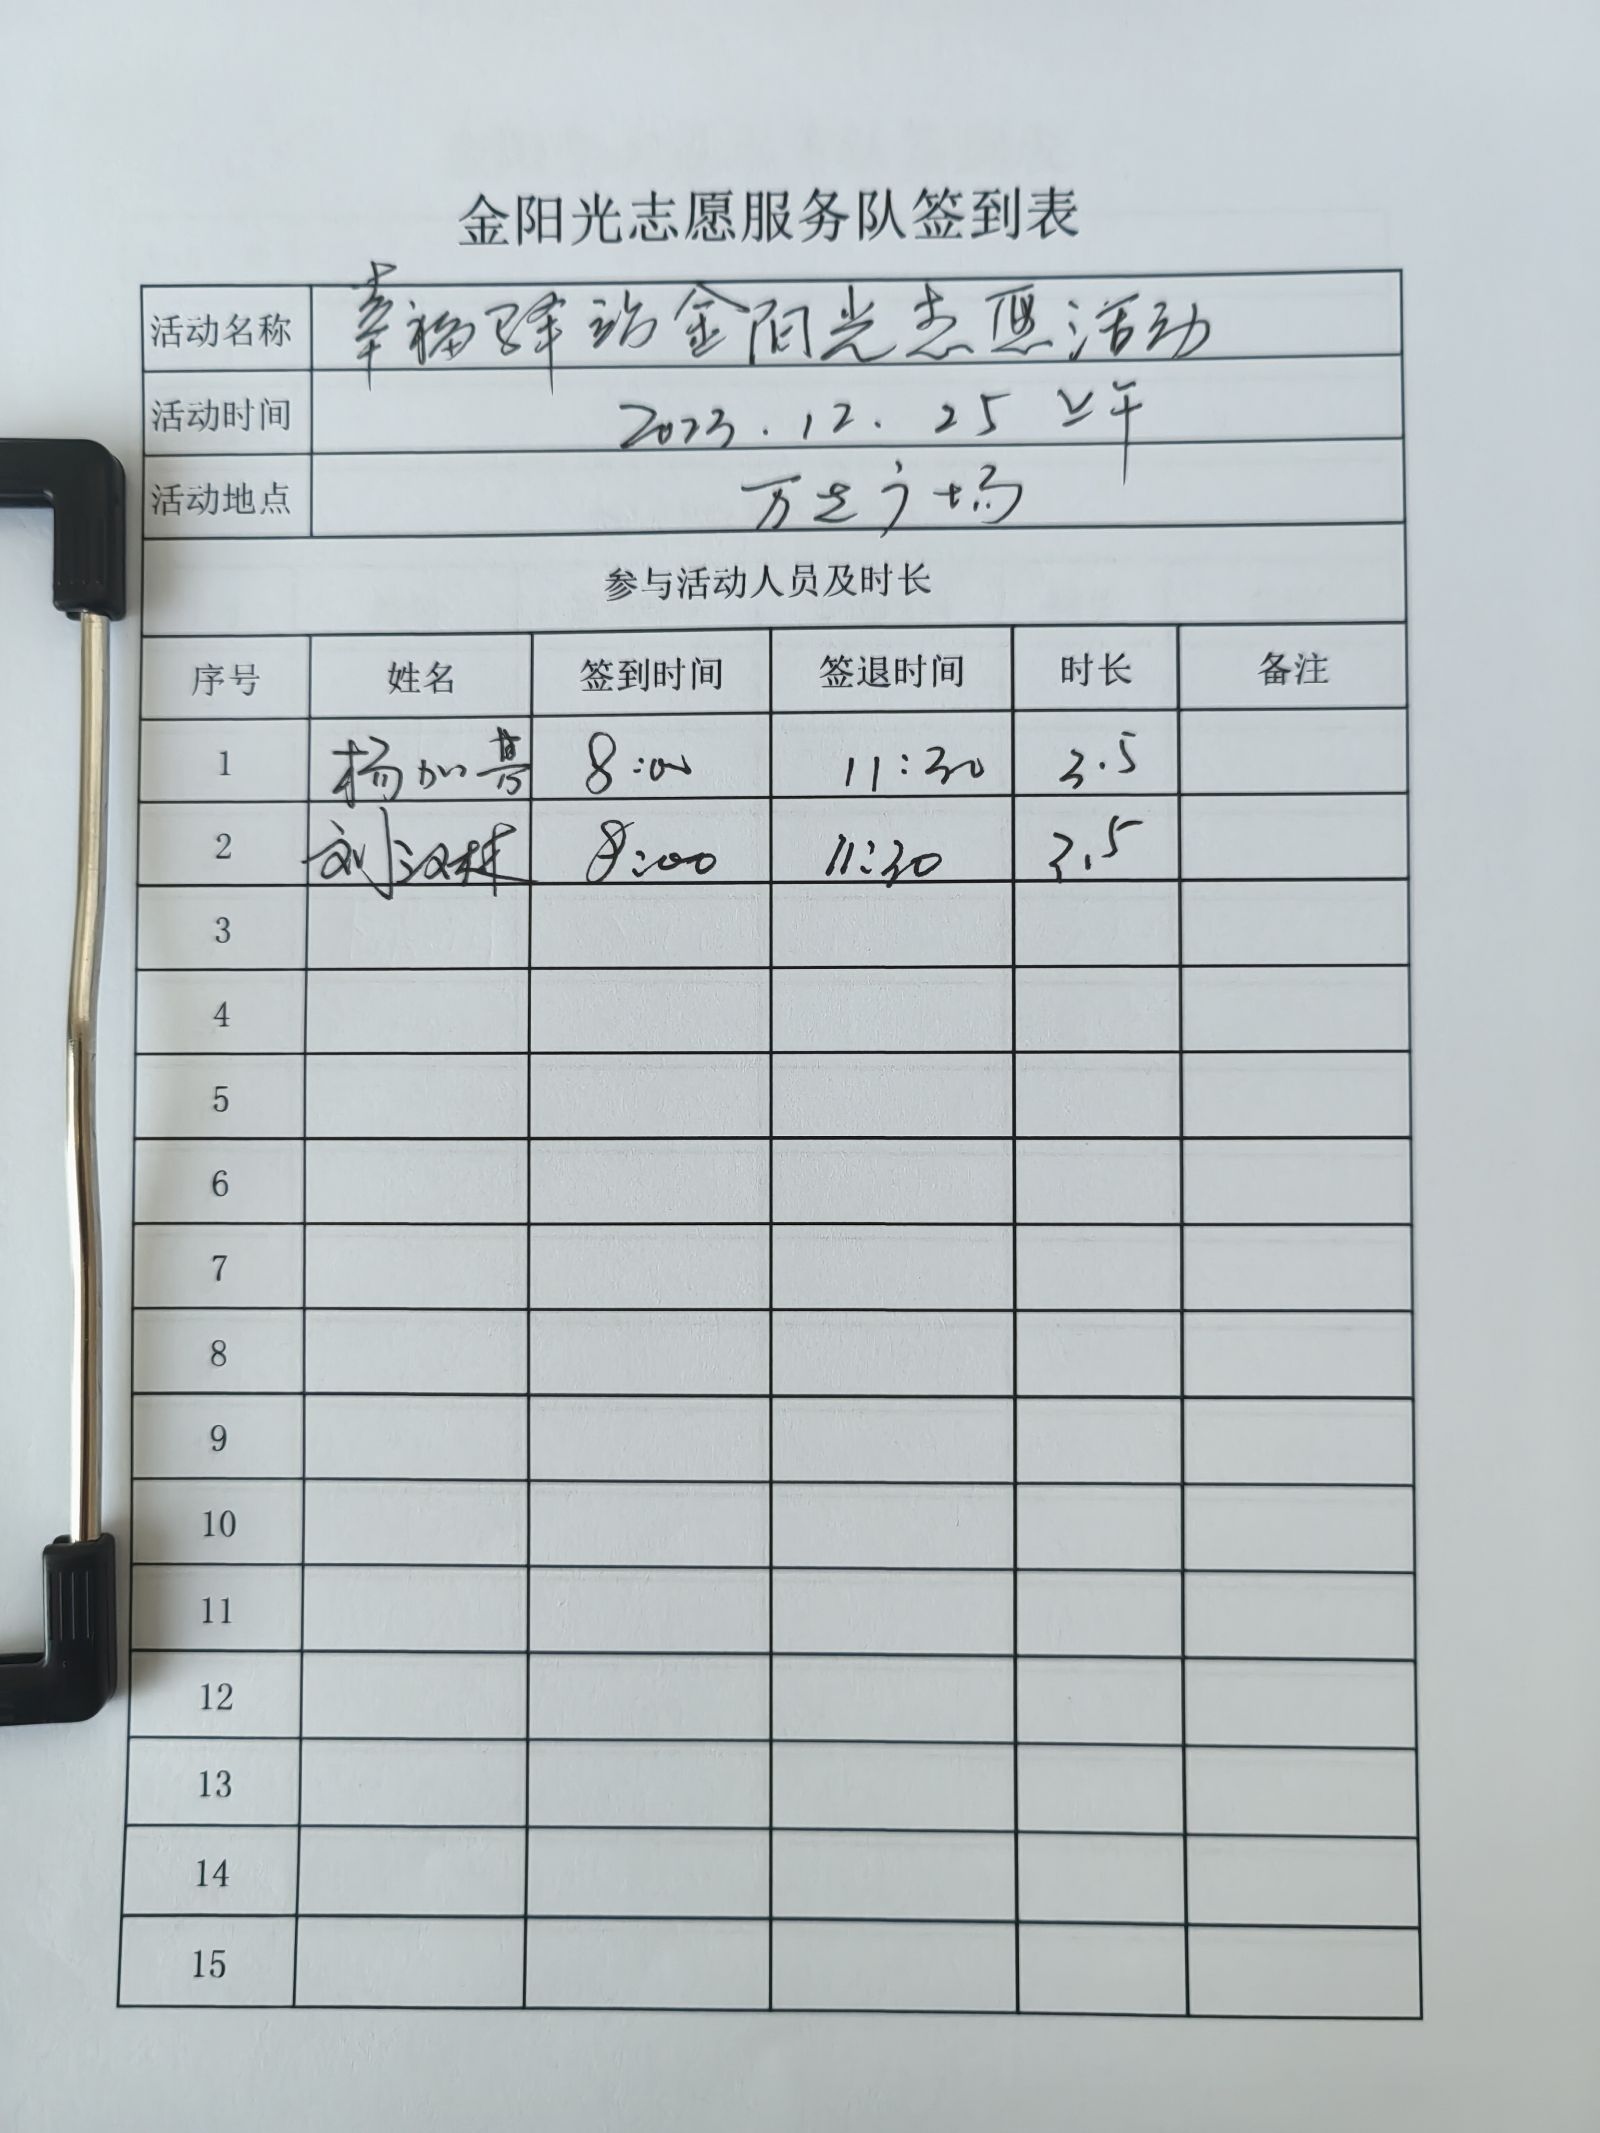 金阳光志愿服务队签到表
活动名称 幸福驿站金阳光志愿活动
活动时间 2023.12.25 上午
活动地点 万达广场
参与活动人员及时长
序号 姓名 签到时间 签退时间 时长 备注
1 杨加 8:00 11:30 3.5
2 刘汉林 8:00 11:30 3.5
3
4
5
6
7
8
9
10
11
12
13
14
15